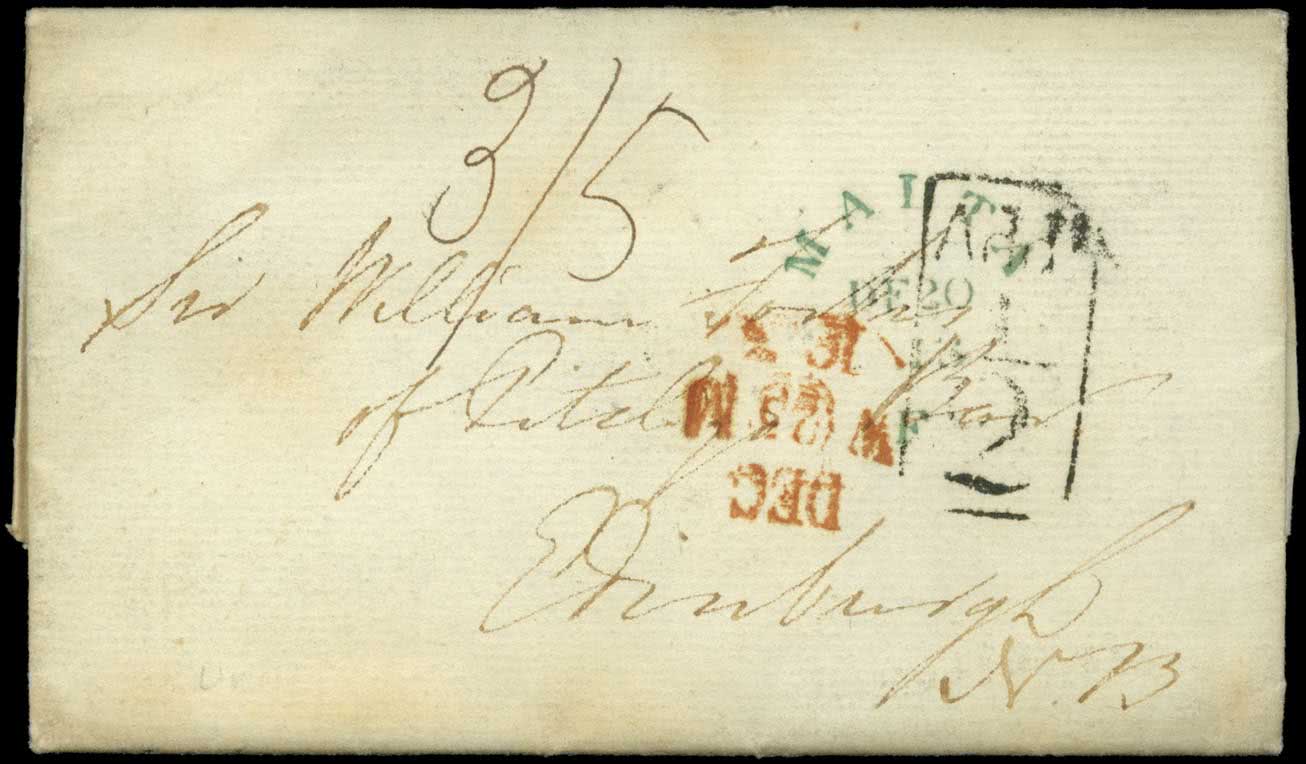 3/5
MALTA
DE 20
F
Sir William Forbes
of Pitsligo Bart
Edinburgh
N. B
DEC
1/2